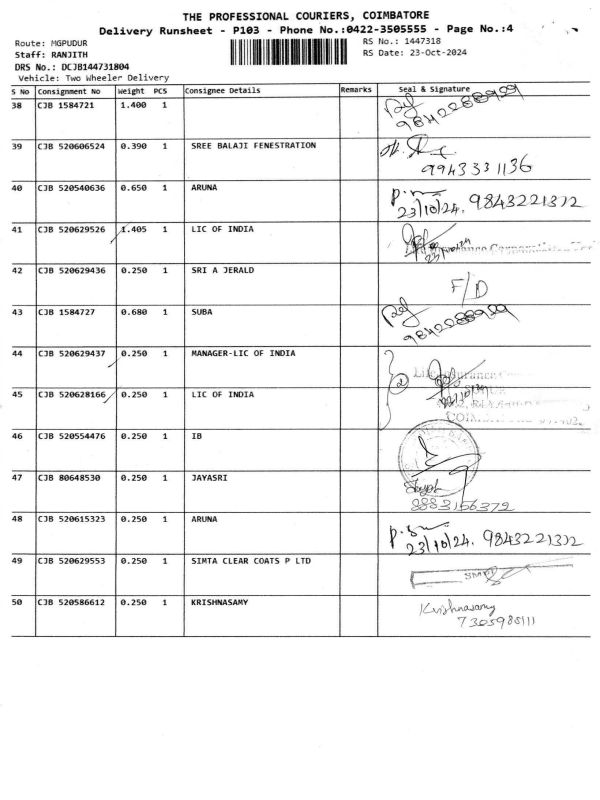 THE PROFESSIONAL COURIERS, COIMBATORE
Delivery Runsheet - P103 - Phone No.:0422-3505555 - Page No.:4
Route: MGPUDUR
RS No.: 1447318
Staff: RANJITH
RS Date: 23-Oct-2024
DRS No.: DCJB144731804
Vehicle: Two Wheeler Delivery
S No Consignment No Weight PCS Consignee Details Remarks Seal & Signature
38 CJB 1584721 1.400 1
39 CJB 520606524 0.390 1 SREE BALAJI FENESTRATION
9943331136
40 CJB 520540636 0.650 1 ARUNA
23/10/24. 9843221312
41 CJB 520629526 1.405 1 LIC OF INDIA
42 CJB 520629436 0.250 1 SRI A JERALD
F/D
43 CJB 1584727 0.680 1 SUBA
44 CJB 520629437 0.250 1 MANAGER-LIC OF INDIA
2
45 CJB 520628166 0.250 1 LIC OF INDIA
46 CJB 520554476 0.250 1 IB
47 CJB 80648530 0.250 1 JAYASRI
8883166372
48 CJB 520615323 0.250 1 ARUNA
23/10/24. 9843221312
49 CJB 520629553 0.250 1 SIMTA CLEAR COATS P LTD
50 CJB 520586612 0.250 1 KRISHNASAMY
Krishnasamy
7305985111